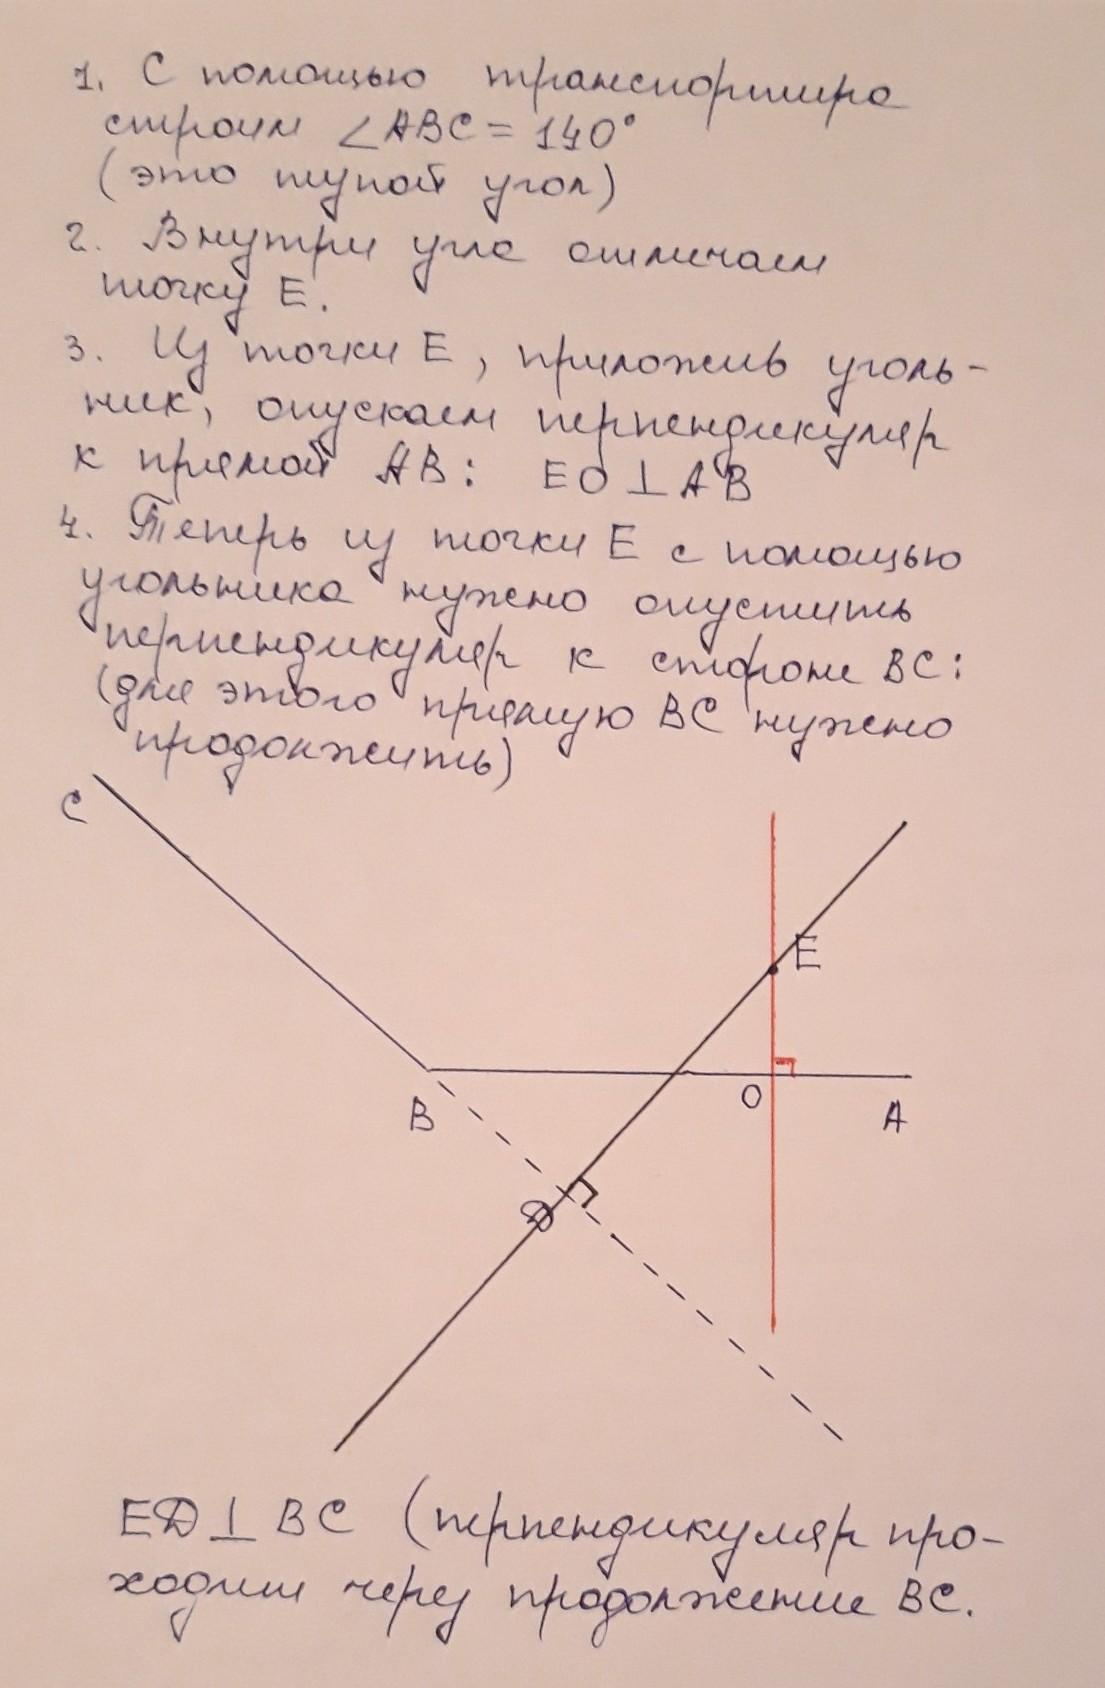 1. С помощью транспортира
строим ∠ABC = 140°
(это тупой угол)
2. Внутри угла отмечаем
точку E.
3. Из точки E, приложив уголь-
ник, опускаем перпендикуляр
к прямой AB: EO⊥AB
4. Теперь из точки E с помощью
угольника нужно опустить
перпендикуляр к стороне BC:
(для этого прямую BC нужно
продолжить)
C
E
O
B
A
D
ED⊥BC (перпендикуляр про-
ходит через продолжение BC.